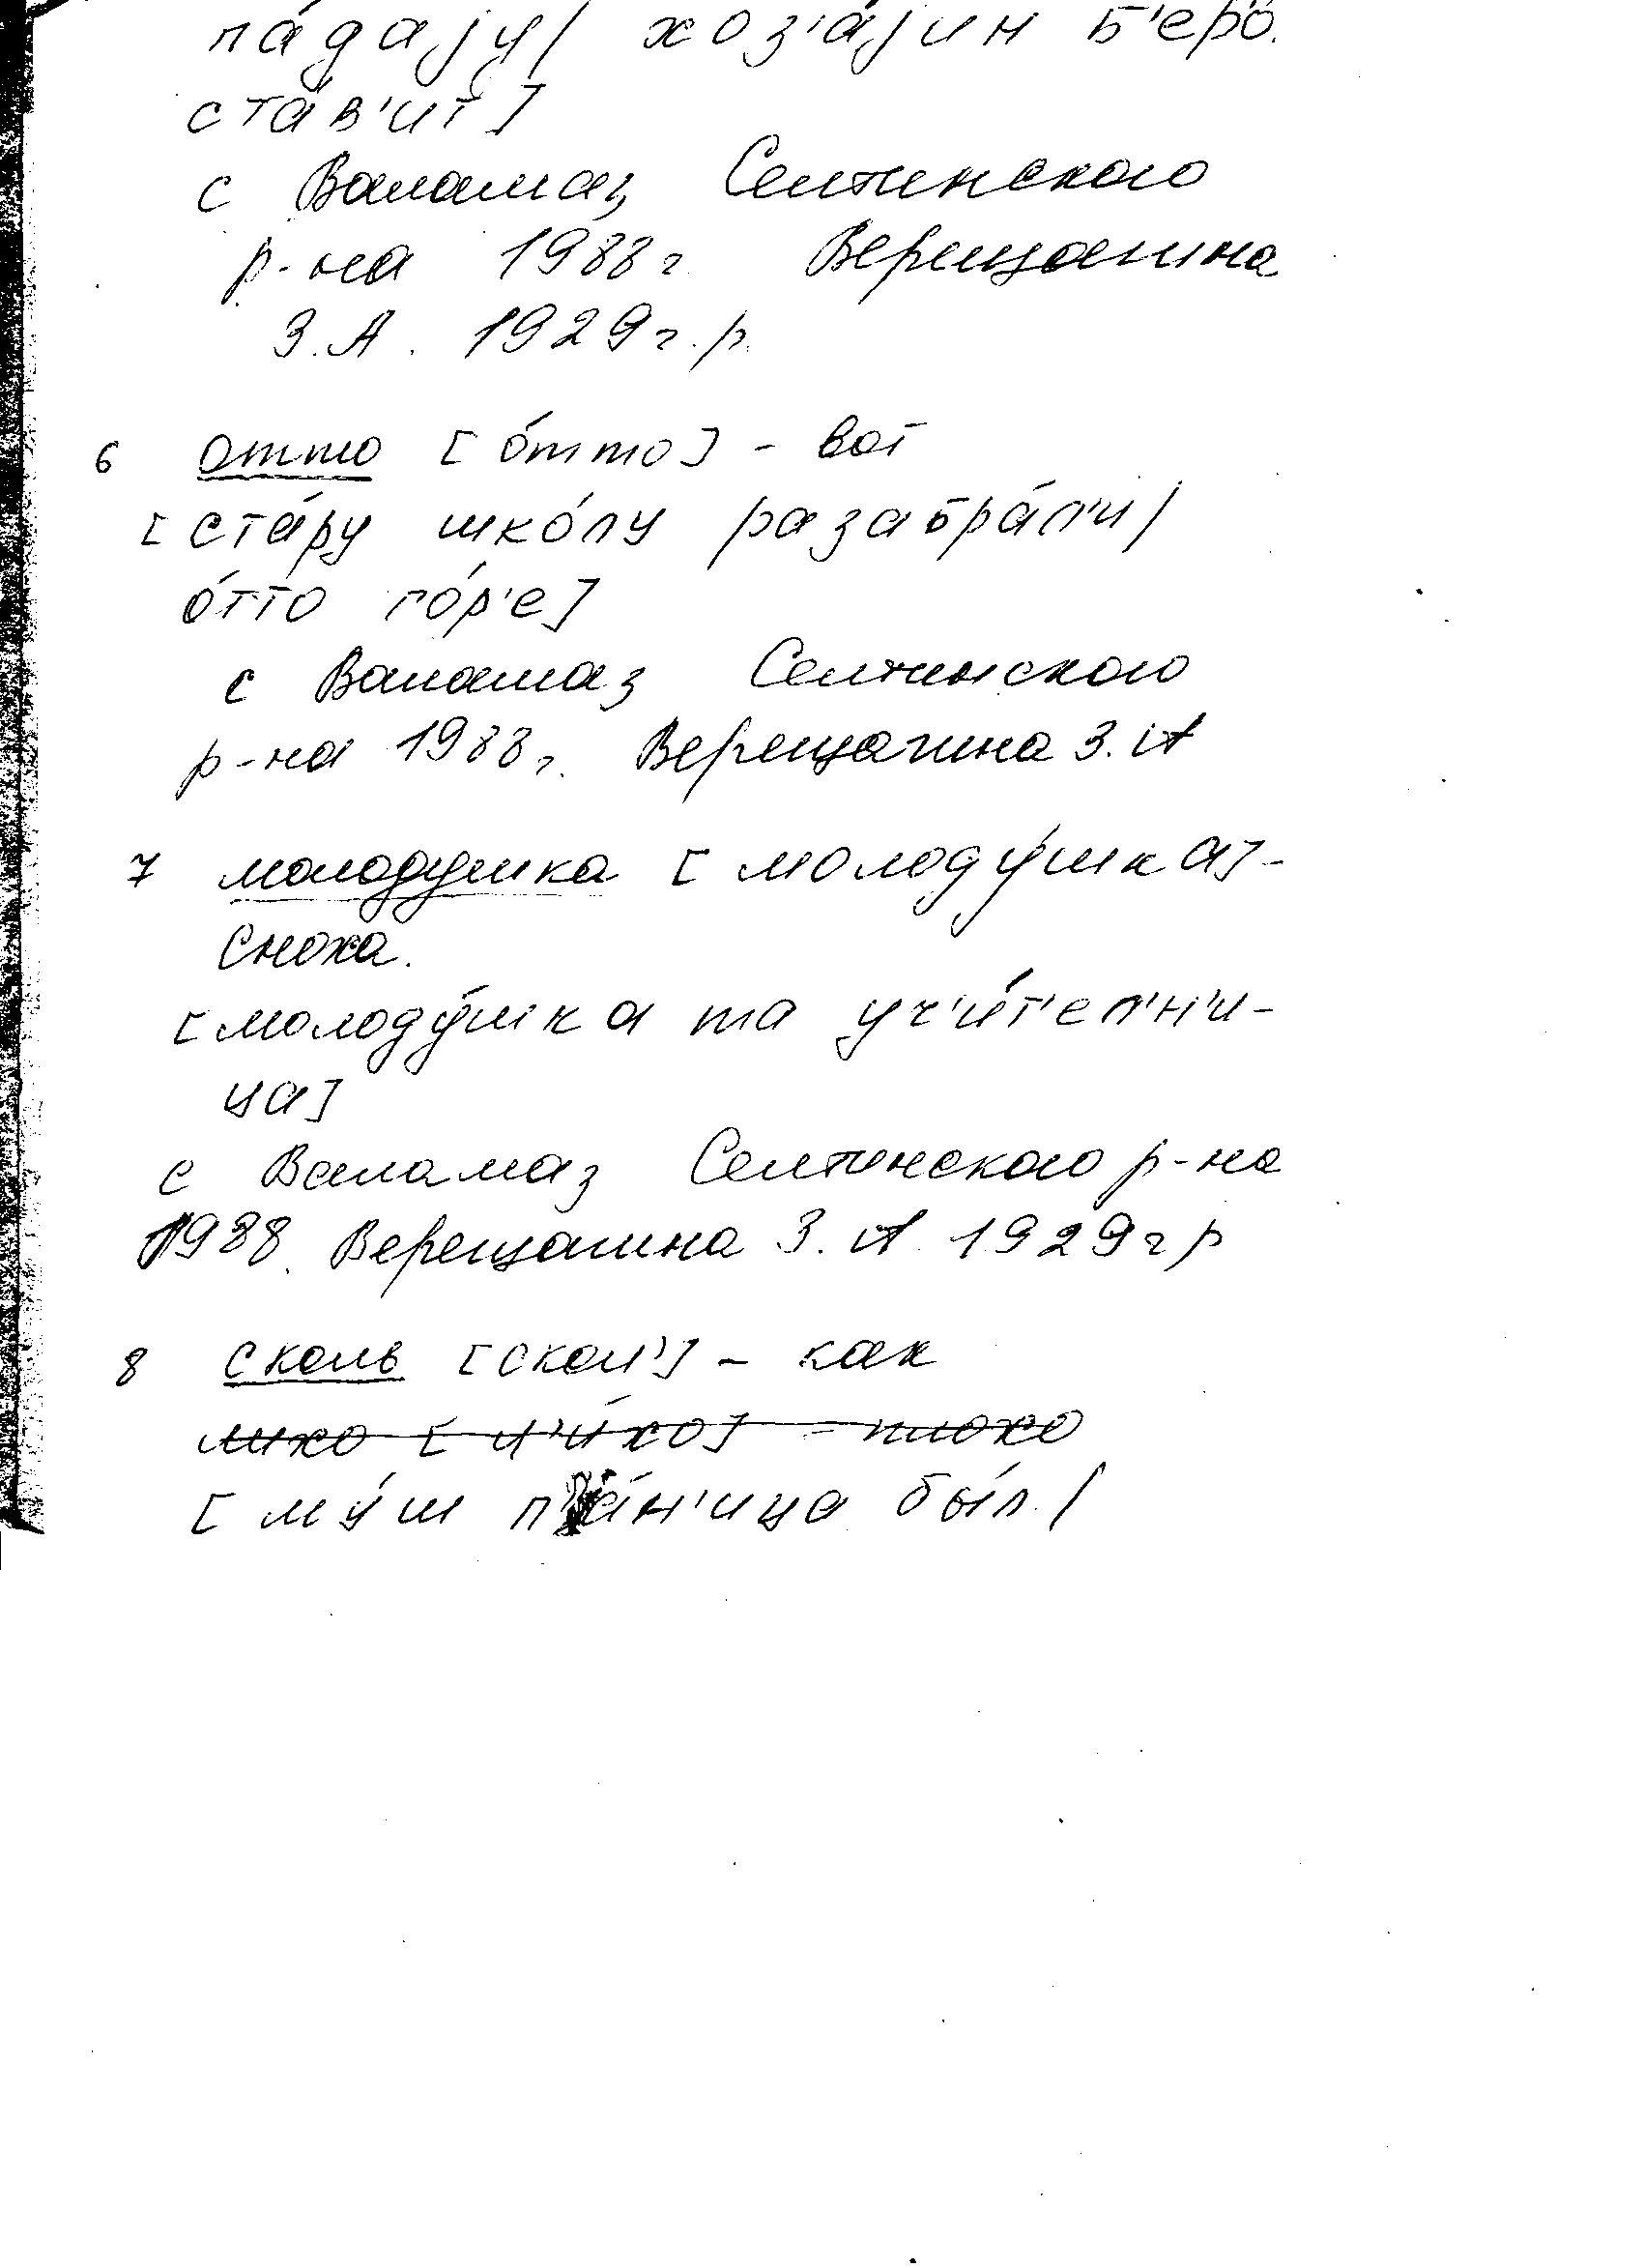 па́дајут/ хоз'а́јин б'еро́.
ста́в'ит]
с Валамаз Селтинского
р-на 1988 г Верещагина
З.А. 1929 г.р.
6 отто [о́тто] - вот
[ста́ру шко́лу разабра́л'и/
о́тто го́р'е]
с Валамаз Селтинского
р-на 1988 г. Верещагина З.А
7 молодушка [молоду́шка] -
сноха.
[молоду́шка та уч'и́т'ел'н'и-
ца]
с Валамаз Селтинского р-на
1988. Верещагина З.А. 1929 г р
8 сколь [скол'] - как
лихо [л'и́хо] - плохо
[му́ш п'jа́н'ица бы́л./